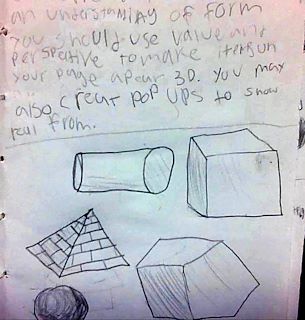 an understanding of form
you should use value and
perspective to make items on
your page apear 3D. you may
also creat pop ups to show
real from.